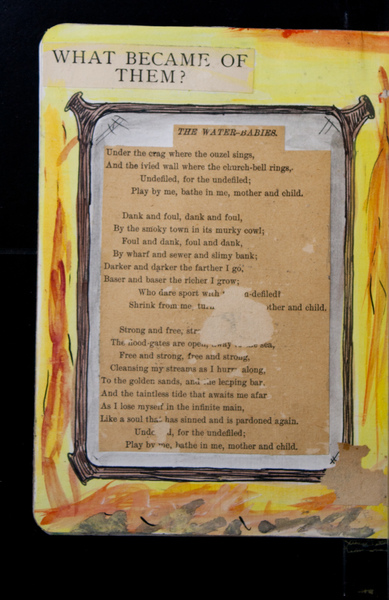 WHAT BECAME OF
THEM?
THE WATER-BABIES.
Under the crag where the ouzel sings,
And the ivied wall where the church-bell rings,
Undefiled, for the undefiled;
Play by me, bathe in me, mother and child.
Dank and foul, dank and foul,
By the smoky town in its murky cowl;
Foul and dank, foul and dank,
By wharf and sewer and slimy bank;
Darker and darker the farther I go,
Baser and baser the richer I grow;
Who dare sport with -defiled?
Shrink from me, turn other and child.
Strong and free, str
The flood-gates are open, away sea,
Free and strong, free and strong,
Cleansing my streams as I hurry along,
To the golden sands, and the leaping bar,
And the taintless tide that awaits me afar
As I lose myself in the infinite main,
Like a soul that has sinned and is pardoned again.
Unde d, for the undefiled;
Play by me, bathe in me, mother and child.